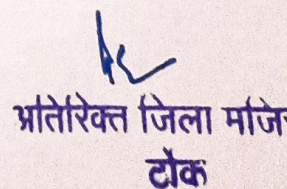 अतिरिक्त जिला मजि
टोंक